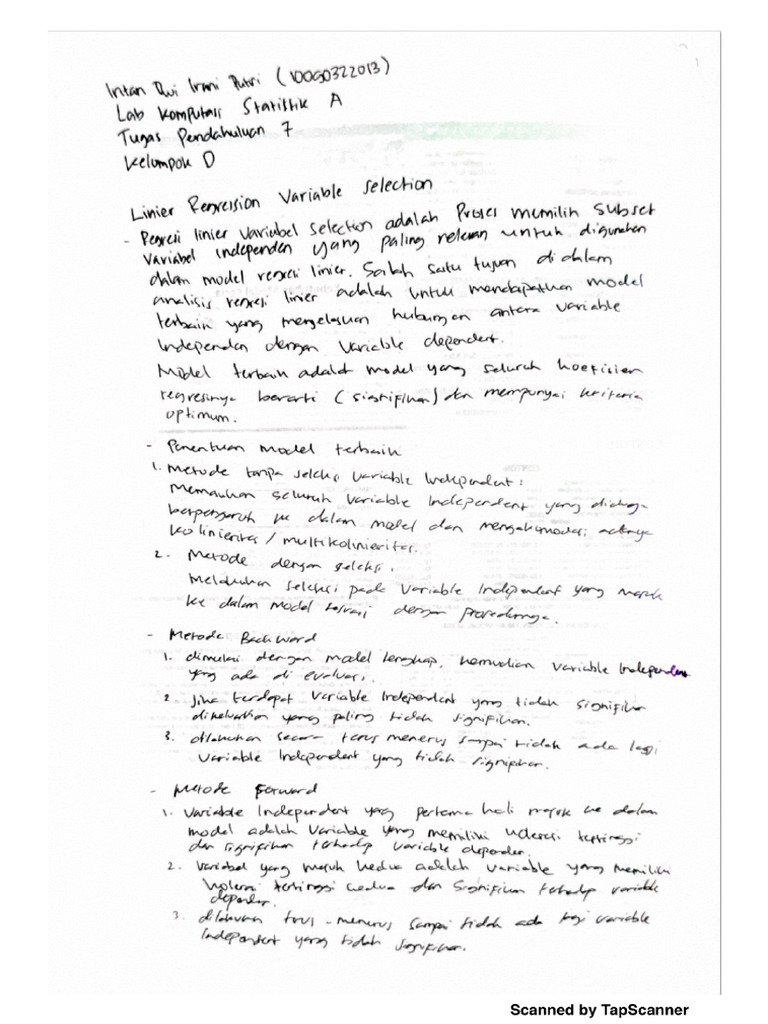 Intan Dwi Irani Putri (10060322013)
Lab Komputasi Statistik A
Tugas Pendahuluan 7
Kelompok D
Linier Regression Variable Selection
- Regresi linier variabel selection adalah Proses memilih subset
Variabel Independen yang paling relevan untuk digunakan
dalam model regresi linier. Salah satu tujuan di dalam
analisis regresi linier adalah untuk mendapatkan model
terbaik yang menjelaskan hubungan antara variable
Independen dengan Variable dependent.
Model terbaik adalah model yang seluruh koefisien
regresinya berarti (signifikan) dan mempunyai kriteria
optimum.
- Penentuan Model terbaik
1. Metode tanpa seleksi Variable Independent :
Memasukan seluruh Variable Independent yang diduga
berpengaruh ke dalam model dan mengakomodasi adanya
kolinieritas / multikolinieritas.
2. Metode dengan seleksi.
Melakukan seleksi pada Variable Independent yang masuk
ke dalam model sesuai dengan prosedurnya.
- Metode Backward
1. dimulai dengan model lengkap, kemudian variable Independent
yang ada di evaluasi.
2. Jika terdapat Variable Independent yang tidak signifikan
dikeluarkan yang paling tidak signifikan.
3. dilakukan secara terus menerus sampai tidak ada lagi
Variable Independent yang tidak signifikan.
- Metode Forward
1. Variable Independent yang pertama kali masuk ke dalam
model adalah Variable yang memiliki korelasi tertinggi
dan signifikan terhadap variable dependen.
2. Variabel yang masuk kedua adalah variable yang memiliki
korelasi tertinggi kedua dan signifikan terhadap variable
dependen.
3. dilakukan terus - menerus sampai tidak ada lagi variable
Independent yang tidak signifikan.
Scanned by TapScanner